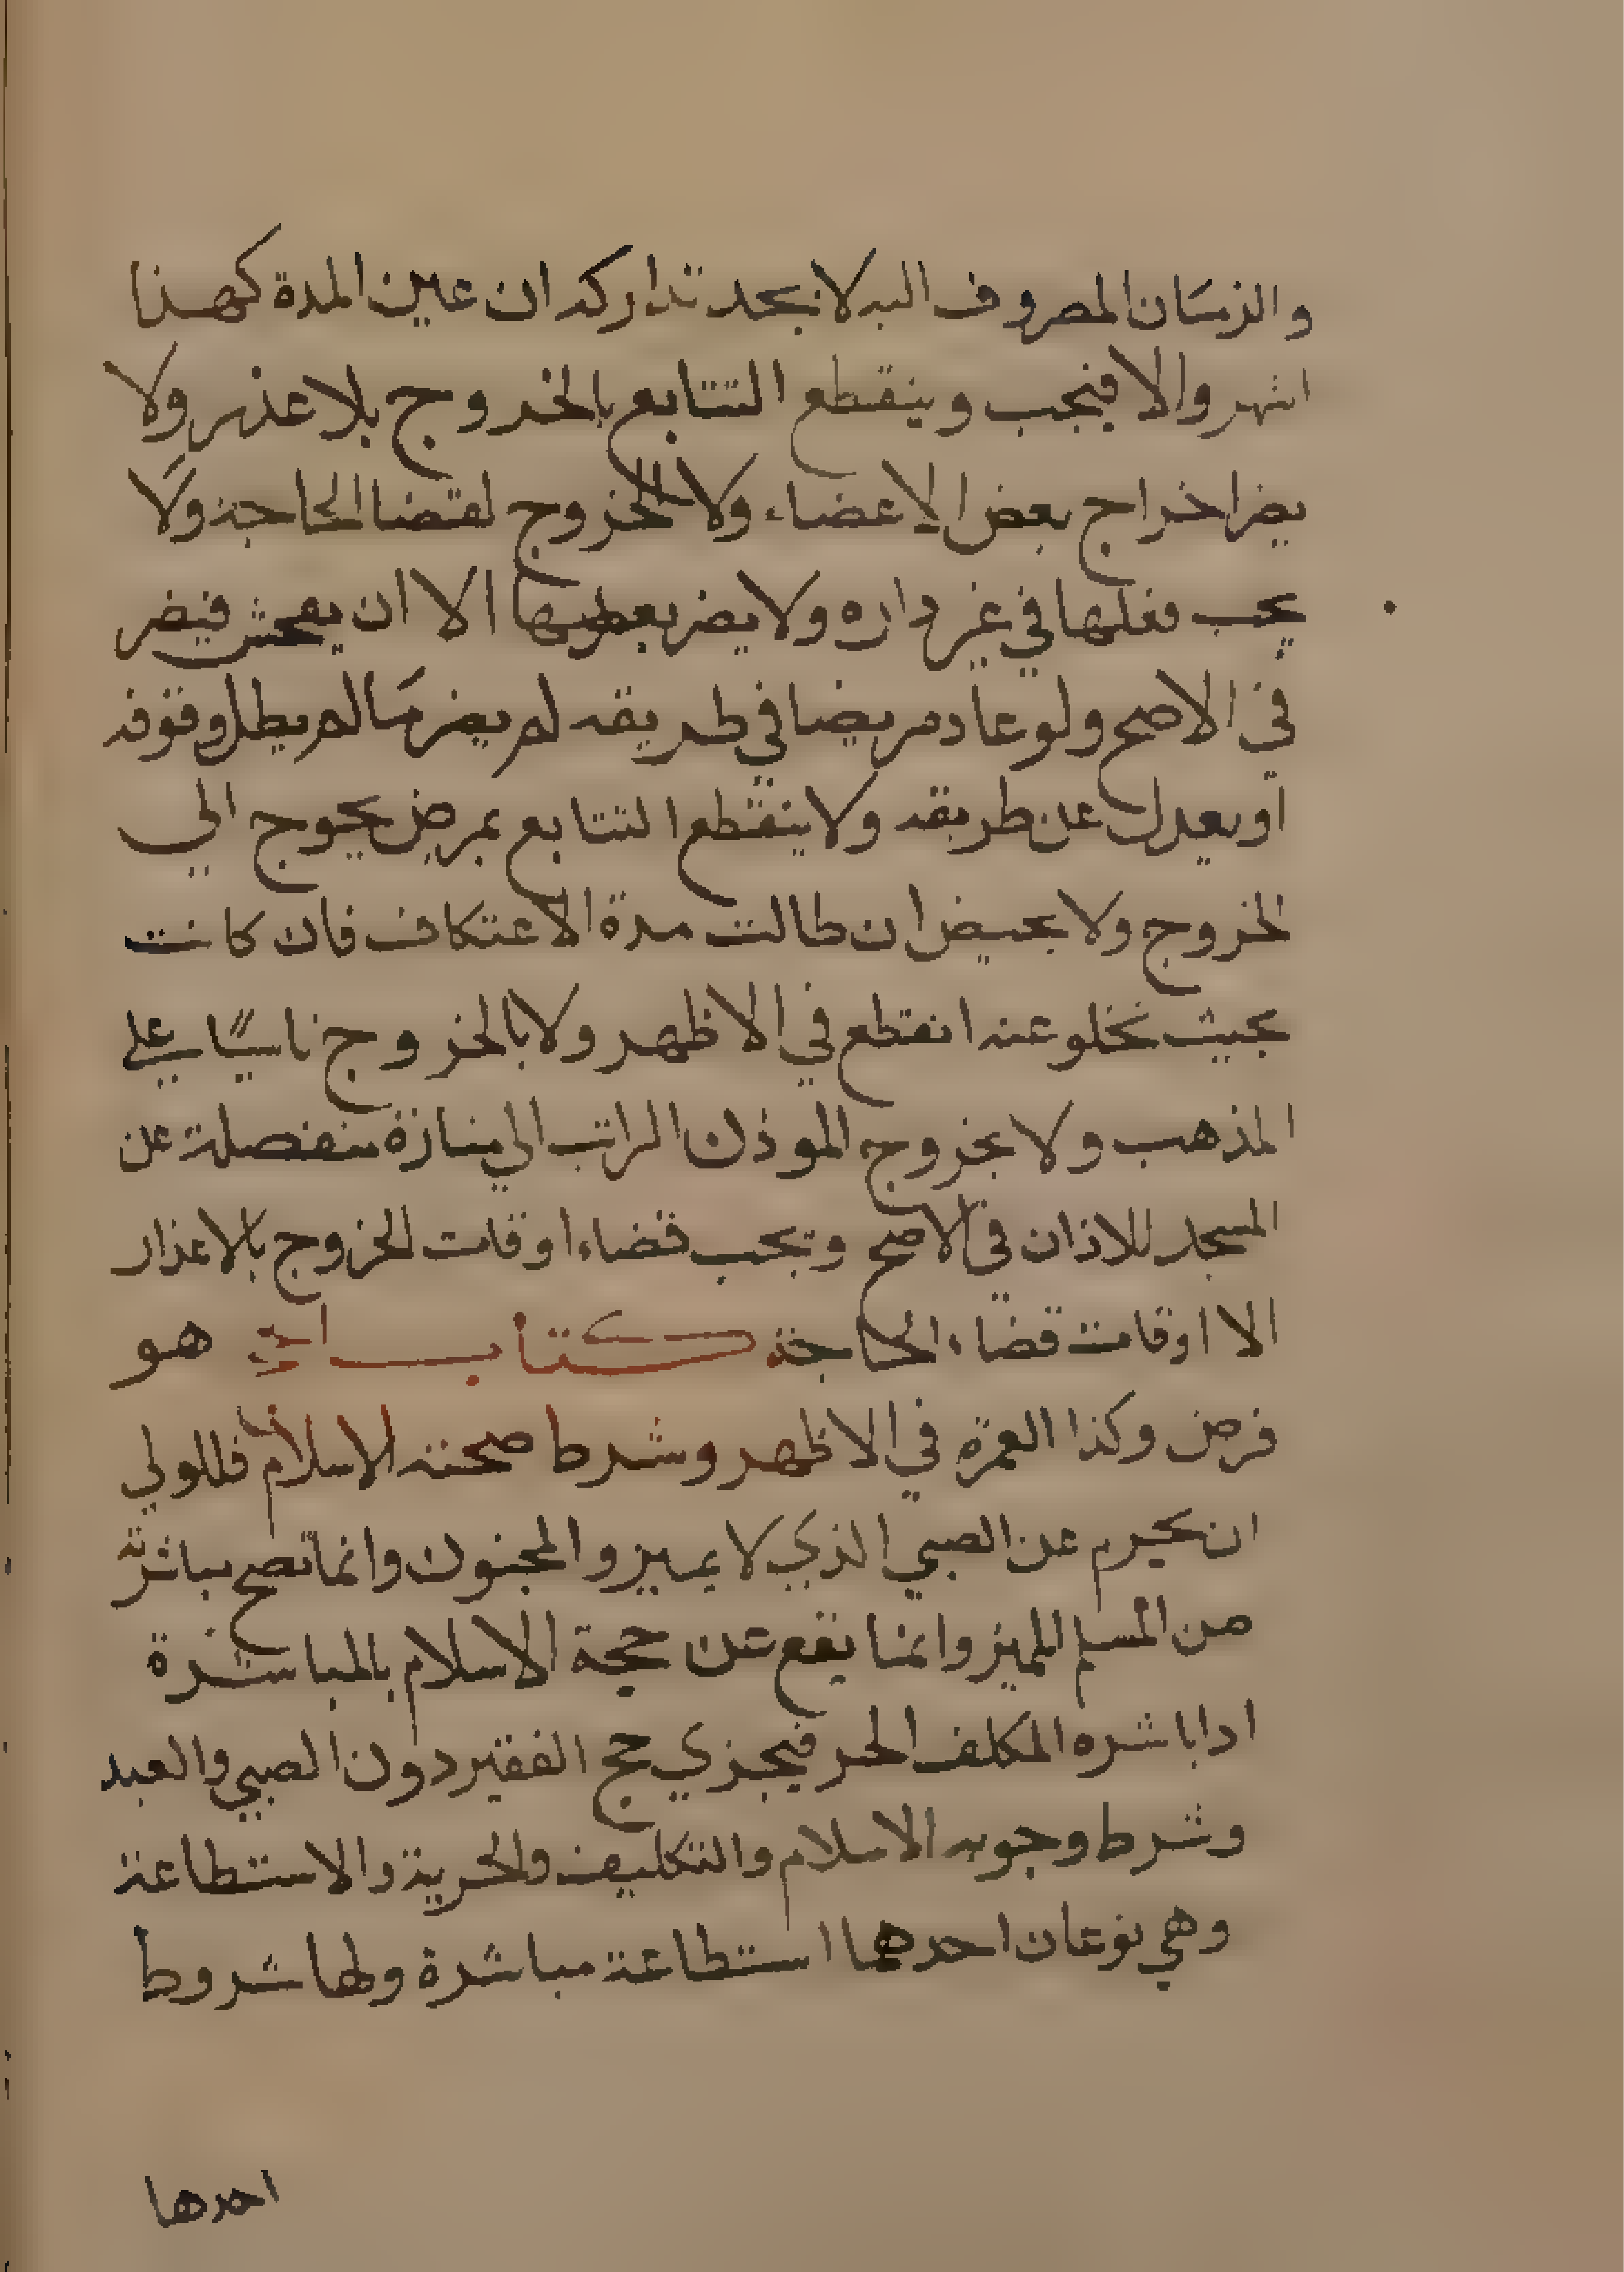 والزمان المصروف اليه لا يجد تداركه ان عين المدة كهذا
الشهر والا فيجب وينقطع التتابع بالخروج بلا عذر ولا
يضر اخراج بعض الاعضاء ولا الخروج لقضا الحاجة ولا
يجب فعلها في غير داره ولا يضر بعدها الا ان يفحش فيضر
في الاصح ولو عاد مريضا في طريقه لم يضر ما لم يطل وقوفه
او يعدل عن طريقه ولا ينقطع التتابع بمرض يحوج الي
الخروج ولا بحيض ان طالت مدة الاعتكاف فان كانت
بحيث تخلو عنه انقطع في الاظهر ولا بالخروج ناسيًا علي
المذهب ولا بخروج الموذن الراتب الي منارة منفصلة عن
المسجد للاذان في الاصح ويجب قضاء اوقات الخروج بالاعذار
الا اوقات قضاء الحاجة كتاب الحج هو
فرض وكذا العمرة في الاظهر وشرط صحته الاسلام فللولي
ان يحرم عن الصبي الذي لا يميز والمجنون وانما تصح مباشرته
من المسلم المميز وانما يقع عن حجة الاسلام بالمباشرة
ادا باشره المكلف الحر فيجزي حج الفقير دون الصبي والعبد
وشرط وجوبه الاسلام والتكليف والحرية والاستطاعة
وهي نوعان احدهما استطاعة مباشرة ولها شروط
احدها